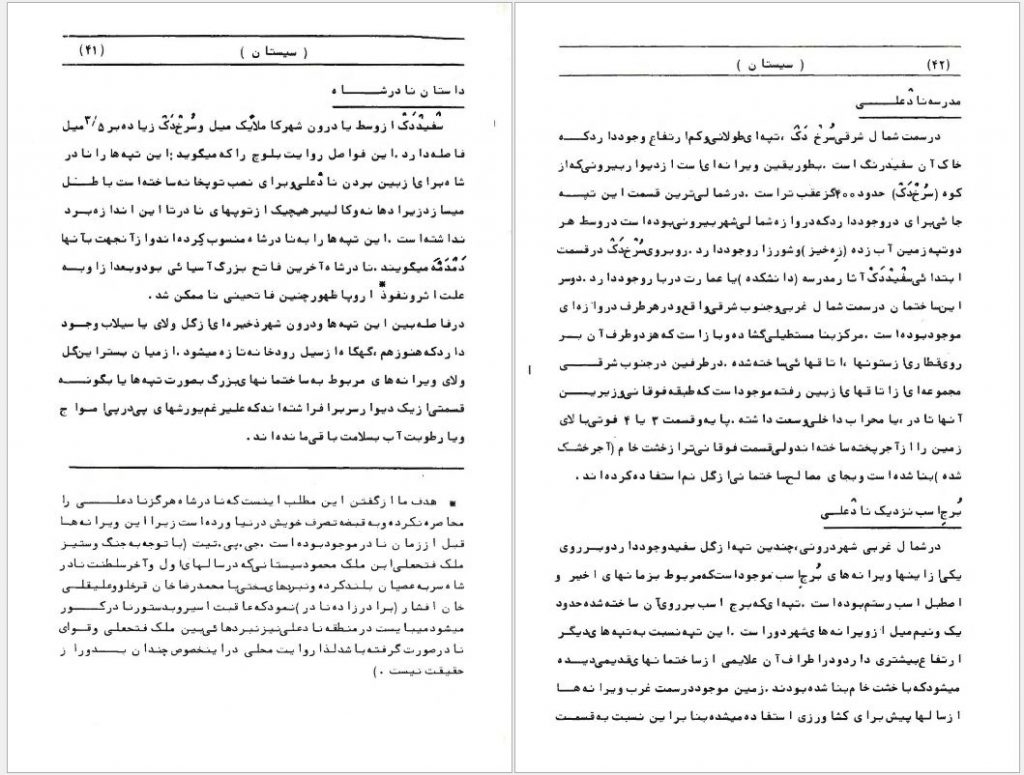 (۴۱) ( سیستان )
داستان نادرشاه
سفیددک ازوسط یادرون شهرکاملاً یک میل وسرخ دک زیاده بر ۳/۵ میل
فاصله دارد .این فواصل روایت بلوچ راکه میگوید :این تپه هارانادر
شاه برای ازبین بردن نادعلی وبرای نصب توپخانه ساخته است باطل
میسازدزیرادهانه وکالیبرهیچیک ازتوپهای نادرتااین اندازه برد
نداشته است .این تپه هارابه نادرشاه منسوب کرده اندوازآنجهت بآنها
دمدمه میگویند .نادرشاه آخرین فاتح بزرگ آسیائی بودوبعدازوبه
علت اثرونفوذ* اروپاظهورچنین فاتحینی ناممکن شد .
درفاصله بین این تپه هاودرون شهرذخیره ای ازگل ولای یاسیلاب وجود
داردکه هنوزهم ،گهگاه ازسیل رودخانه تازه میشود .ازمیان بستراین گل
ولای ویرانه های مربوط به ساختمانهای بزرگ بصورت تپه هایابگونه
قسمتی ازیک دیوارسربرافراشته اندکه علیرغم یورشهای پی درپی امواج
ویارطوبت آب بسلامت باقی مانده اند .
* هدف ماازگفتن این مطلب اینست که نادرشاه هرگزنادعلی را
محاصره نکرده وبه قبضه تصرف خویش درنیاورده است زیرااین ویرانه ها
قبل اززمان نادرموجودبوده است .جی.پی.تیت (باتوجه به جنگ وستیز
ملک فتحعلی ابن ملک محمودسیستانی که درسالهای اول وآخرسلطنت نادر
شاه سربه عصیان بلندکرده ونبردهای سختی بامحمدرضاخان قرخلووعلیقلی
خان افشار (برادرزاده نادر)نمودکه عاقبت اسیروبدستورنادرکور
میشودمیبایست درمنطقه نادعلی نیزنبردهائی بین ملک فتحعلی وقوای
نادرصورت گرفته باشدلذاروایت محلی دراینخصوص چندان بدوراز
حقیقت نیست .)
(۴۲) ( سیستان )
مدرسه نادعلی
درسمت شمال شرقی سرخ دک ،تپه ای طولانی وکم ارتفاع وجودداردکه
خاک آن سفیدرنگ است .بطوریقین ویرانه ای است ازدیواربیرونی که از
کوه (سرخ دک) حدود۴۰۰گزعقب تراست .درشمالی ترین قسمت این تپه
جائی برای دروجودداردکه دروازه شمالی شهربیرونی بوده است دروسط هر
دوتپه زمین آب زده (زه خیز )وشورزاروجوددارد .روبروی سرخ دک درقسمت
ابتدائی سفیددک آثارمدرسه (دانشکده )یاعمارت دریاروجوددارد .دوسر
این ساختمان درسمت شمال غربی وجنوب شرقی واقع ودرهرطرف دروازه ای
موجودبوده است .مرکزبنامستطیلی گشاده وبازاست که هردوطرف آن بر
روی قطاری ازستونها ،اتاقهائی ساخته شده .درطرفین درجنوب شرقی
مجموعه ای ازاتاقهای ازبین رفته موجوداست که طبقه فوقانی وزیرین
آنهاتادر،یامحراب داخلی وسعت داشته .پایه وقسمت ۳ یا ۴ فوتی بالای
زمین راازآجرپخته ساخته اندولی قسمت فوقانی تراز خشت خام (آجرخشک
شده )بناشده است وبجای مصالح ساختمانی ازگل نم استفاده کرده اند .
برج اسب نزدیک نادعلی
درشمال غربی شهردرونی ،چندین تپه ازگل سفیدوجودداردوبرروی
یکی ازاینهاویرانه های برج اسب موجوداست که مربوط بزمانهای اخیر و
اصطبل اسب رستم بوده است .تپه ای که برج اسب برروی آن ساخته شده حدود
یک ونیم میل ازویرانه های شهردوراست .این تپه نسبت به تپه های دیگر
ارتفاع بیشتری داردودراطراف آن علایمی ازساختمانهای قدیمی دیده
میشودکه باخشت خام بناشده بودند .زمین موجوددرسمت غرب ویرانه ها
ازسالهاپیش برای کشاورزی استفاده میشده بنابراین نسبت به قسمت